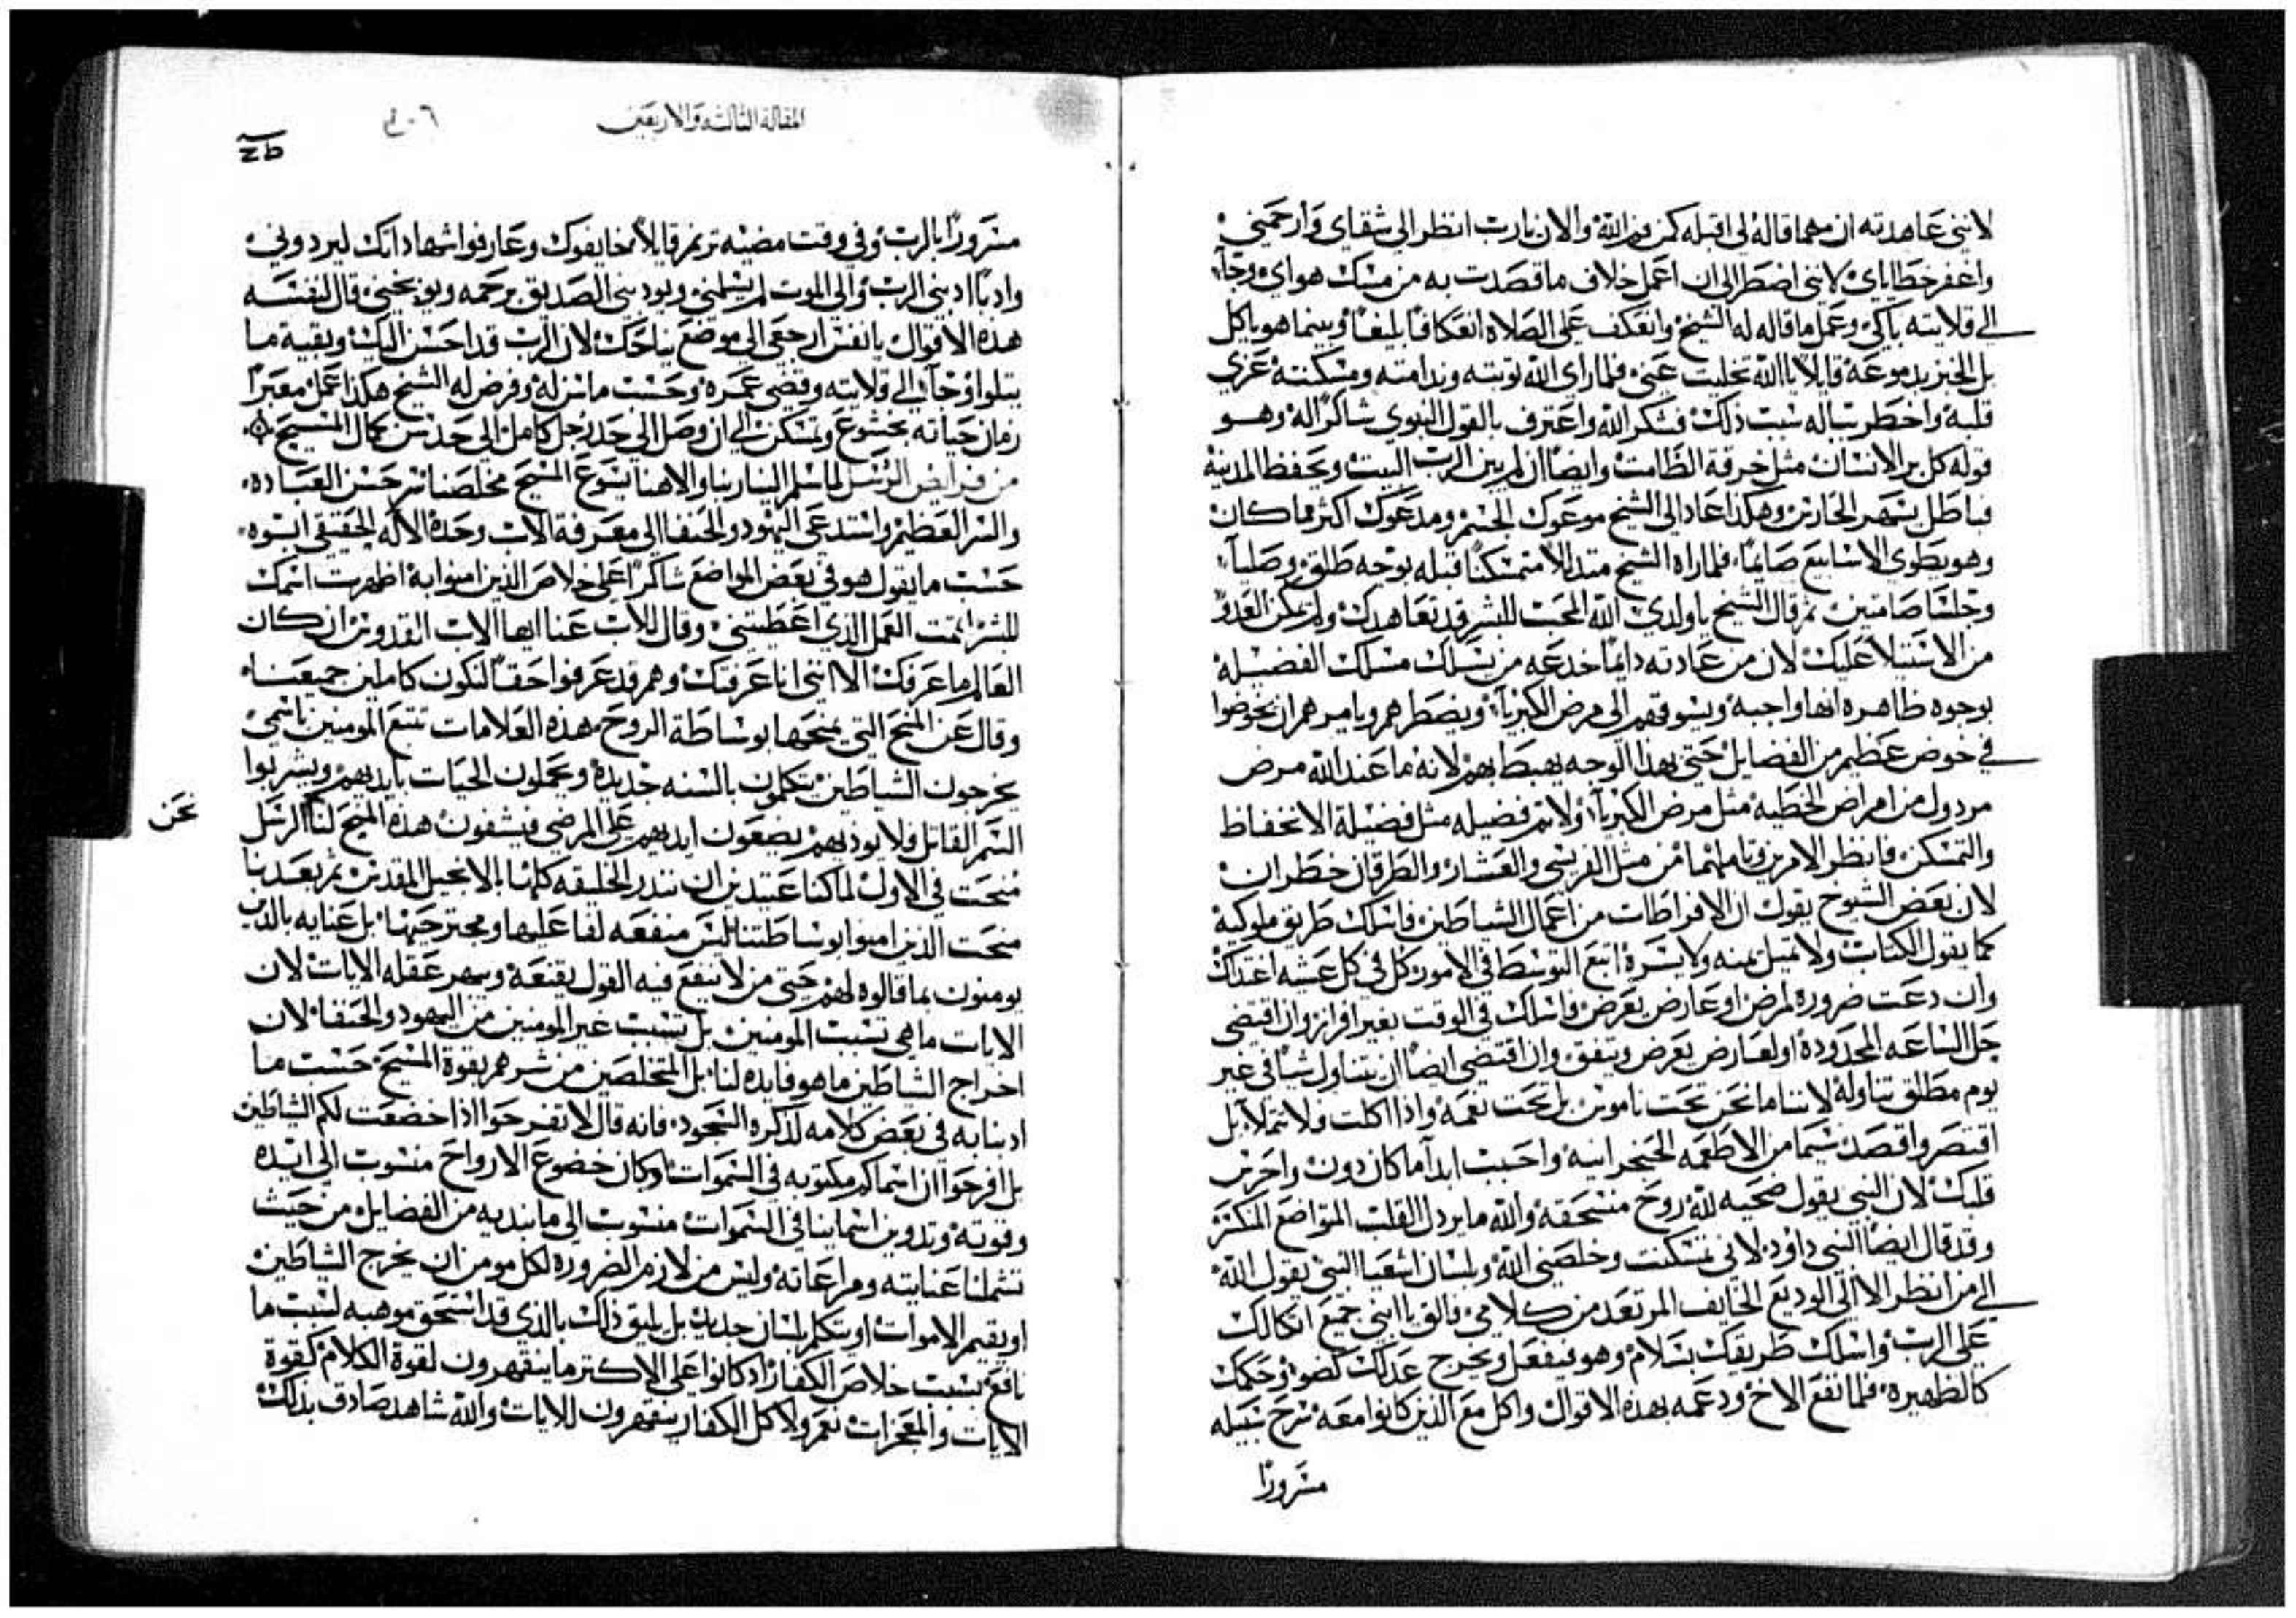 لانني عاهدته ان مهما قاله لي اقبله كمن فم الله والان يارب انظر الى شقاي وارحمني
واغفر خطاياي لانني اضطر الى ان اعمل خلاف ما قصدت به من مسك هواي وجآ
الى قلايته باكي وعمل ما قاله له الشيخ وانعكف على الصلاه انعكافًا بليغًا وبينما هو ياكل
بل الخبز بدموعه قايلًا يا الله تخليت عني فلما راى الله توبته وندامته ومسكنته عزي
قلبه واخطر بباله سبب ذلك فشكر الله واعترف بالقول النبوي شاكرًا له وهو
قوله كل بر الانسان مثل خرقة الطامث وايضًا ان لم يبن الرب البيت ويحفظ المدينه
فباطل يسهر الحارس وهكذا عاد الى الشيخ موعوك الجسم ومدعوك اكثر مما كان
وهو يطوي الاسابيع صايمًا فلما راه الشيخ متدللا متمسكنًا قبله بوجه طلق وصليا
وجلسا صامتين ثم قال الشيخ ياولدي الله المحب للبشر قد تعاهدك ولم يمكن العدو
من الاستيلا عليك لان من عادته دايمًا خدعه من يسلك مسلك الفضيله
بوجوه ظاهره انها واجبه ويسوقهم الى مرض الكبريآ ويضطرهم ويامرهم ان يخوضوا
في خوض عظيم من الفضايل حتى بهذا الوجه يهبط بهم لانه ما عند الله مرض
مردول من امراض الخطيه مثل مرض الكبريآ ولا ثم فضيله مثل فضيلة الانخفاظ
والتمسكن فانظر الامرين وتاملهما من مثل الفريسي والعشار والطرقان خطران
لان بعض الشيوخ يقول ان الافراطات من اعمال الشياطين فاسلك طريق ملوكيه
كما يقول الكتاب ولا تميل يمنه ولا يسره اتبع التوسط في الامور كل في كل عشيه اغتداك
وان دعت ضروره لمرض او عارض يعرض فاسلك في الوقت بغير افراز وان اقتضى
حل الساعه المحدوده او لعارض يعرض ويتفق وان اقتضى ايضًا ان تتناول شيًا في غير
يوم مطلق تناوله لاننا ما نحن تحت ناموس بل تحت نعمه واذا اكلت ولا تملآ بل
اقتصر واقصد سيما من الاطعمه الحنجرانيه واحبب ابدآ ما كان دون واحرس
قلبك لان النبي يقول ضحيه لله روح منسحقه والله ما يردل القلب المتواضع المنكسر
وقد قال ايضًا النبي داوود لاني تمسكنت وخلصني الله وبلسان اشعيا النبي يقول الله
الى من انظر الا الى الوديع الخايف المرتعد من كلامي فالق يا ابني جميع اتكالك
على الرب واسلك طريقك بسلام وهو فيفعل ويخرج عدلك كضو وحكمك
كالظهيره فلما نفع الاخ ودعمه بهذه الاقوال واكل مع الذين كانوا معه سرح سبيله
مسرورًا
المقالة الثالثه والاربعين
مسرورًا بالرب وفي وقت مضيه ترنم قايلًا يخايفوك وعارفوا شهاداتك ليردوني
وادبًا ادبني الرب والى الموت لم يسلمني ويودبني الصديق برحمه ويوبخني قال لنفسه
هذه الاقوال يا نفس ارجعي الى موضع نياحك لان الرب قد احسن اليك وبقية ما
يتلوا وجآ الى قلايته وقضى عمره وحسب ما نزله وفرض له الشيخ هكذا عمل معبرًا
زمان حياته بخشوع وتمسكن الى ان وصل الى حد رجل كامل الى حد سن كمال المسيح
من فرايض الرسل لما سلم الينا ربنا والاهنا يسوع المسيح مخلصنا سر حسن العباده
والسر العظيم واستدعى اليهود والحنفا الى معرفة الاب وحده الاله الحقيقي ابيه
حسب ما يقول هو في بعض المواضع شاكرًا على خلاص الذين امنوا به اظهرت اسمك
للبشر اتممت العمل الذي اعطيتني وقال للاب عنا ايها الاب القدوس ان كان
العالم ما عرفك الا انني انا عرفتك وهم قد عرفوا حقًا لنكون كاملين جميعنا
وقال عن المنح التي يمنحها بوساطة الروح هذه العلامات تتبع المومنين باسمي
يخرجون الشياطين يتكلمون بالسنه جديده ويحملون الحيات بايديهم ويشربوا
السم القاتل فلا يوذيهم يضعون ايديهم على المرضى فيشفون هذه المنح لنا الرسل
نحن
منحت في الاول لما كنا عتيدين ان ننذر الخليقه كلها بالانجيل المقدس ثم بعدنا
منحت الذين امنوا بوساطتنا ليس منفعه لفاعليها ومجترحيها بل عنايه بالذين
يومنون بما قالوه لهم حتى من لا ينفع فيه القول يقنعه ويبهر عقله الايات لان
الايات ما هي تسبب المومنين بل تسبب غير المومنين من اليهود والحنفا لان
اخراج الشياطين ما هو فايده لنا بل المتخلصين من شرهم بقوة المسيح حسب ما
ادبنا به في بعض كلامه لذكره السجود فانه قال لا تفرحوا اذا خضعت لكم الشياطين
بل افرحوا ان اسماكم مكتوبه في السموات وكان خضوع الارواح منسوب الى ايده
وقوته وتدوين اسماينا في السموات منسوب الى ما نبديه من الفضايل من حيث
تشملنا عنايته ومراعاته وليس من لازم الضروره لكل مومن ان يخرج الشياطين
او يقيم الاموات او يتكلم بلسان جديد بل يليق ذلك بالذي قد استحق موهبه لسبب ما
نافع بسبب خلاص الكفار اذ كانوا على الاكثر ما ينقهرون لقوة الكلام كقوة
الايات والمعجزات نعم ولا كل الكفار ينقهرون للايات والله شاهد صادق بذلك